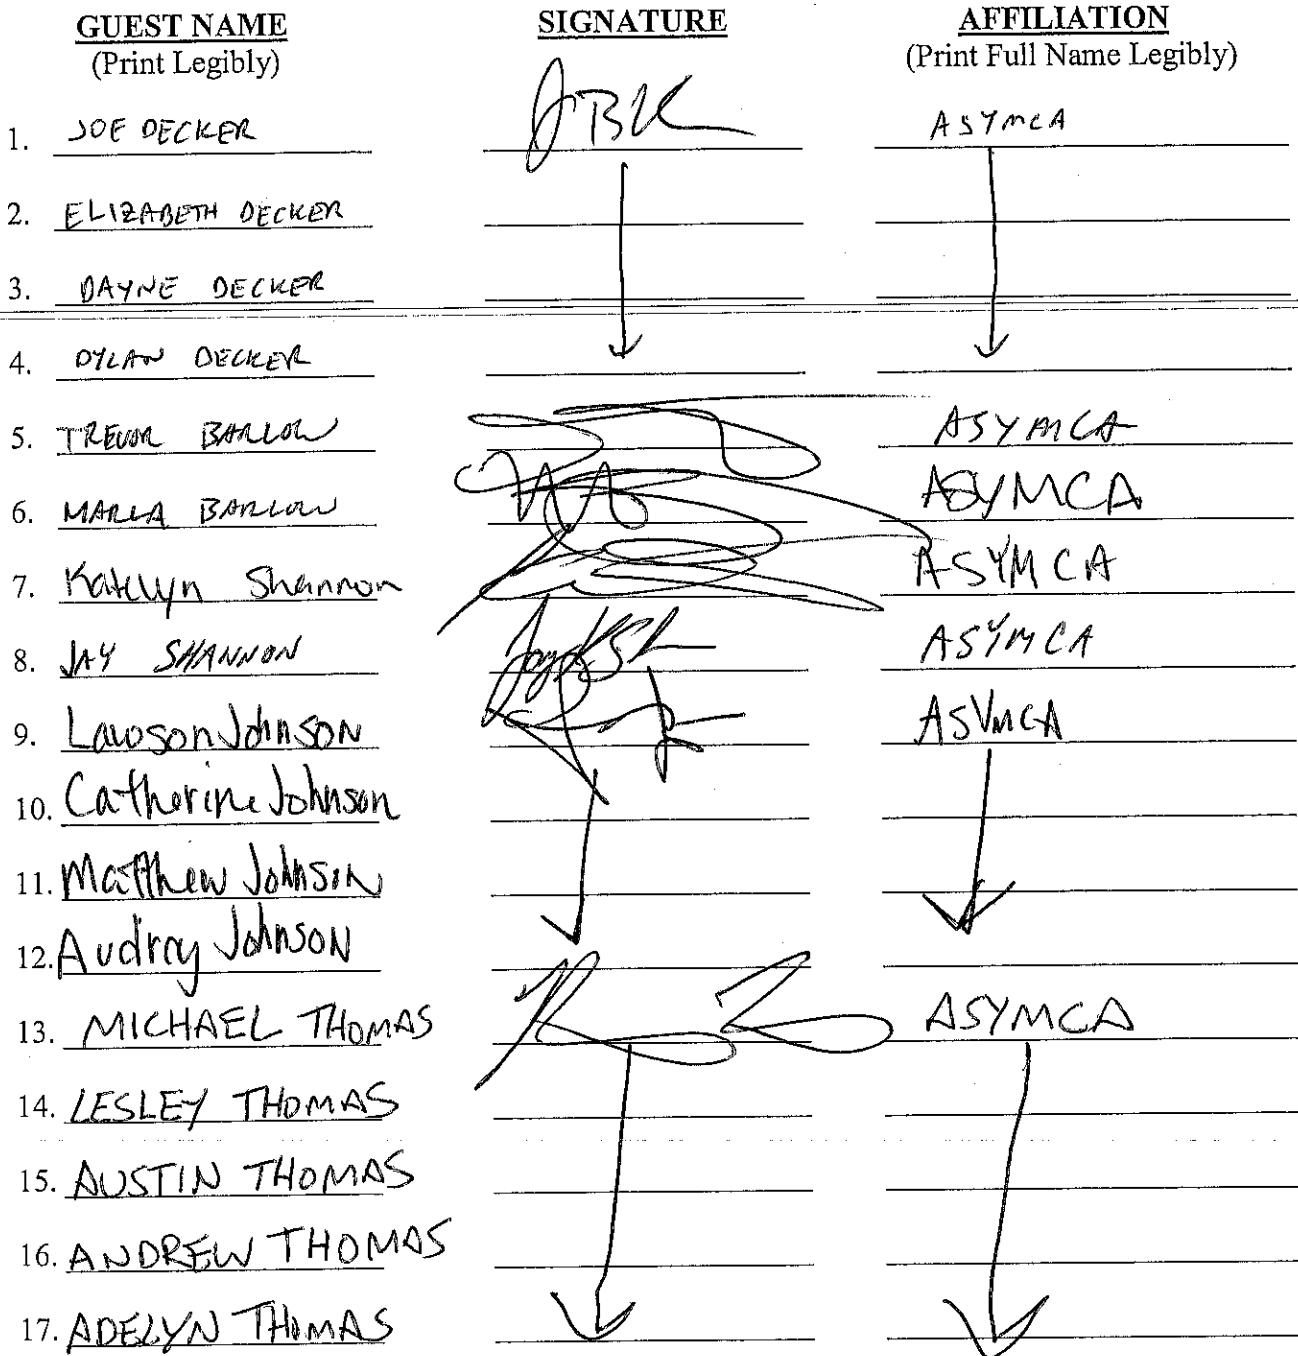 GUEST NAME SIGNATURE AFFILIATION
(Print Legibly) (Print Full Name Legibly)
1. JOE DECKER ASYMCA
2. ELIZABETH DECKER
3. DAYNE DECKER
4. DYLAN DECKER
5. TREVOR BARLOW ASYMCA
6. MARLA BARLOW ASYMCA
7. Katelyn Shannon ASYMCA
8. JAY SHANNON ASYMCA
9. Lawson Johnson ASYMCA
10. Catherine Johnson
11. Matthew Johnson
12. Audrey Johnson
13. MICHAEL THOMAS ASYMCA
14. LESLEY THOMAS
15. AUSTIN THOMAS
16. ANDREW THOMAS
17. ADELYN THOMAS